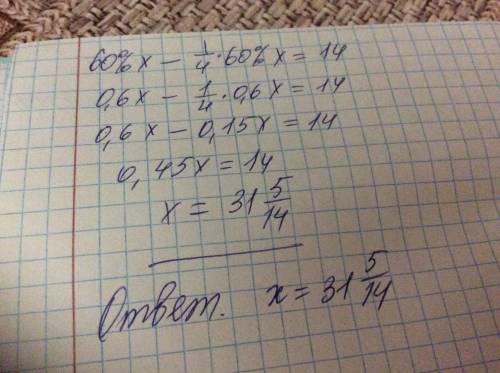 60% x - 1/4 · 60% x = 14
0,6x - 1/4 · 0,6x = 14
0,6x - 0,15x = 14
0,45x = 14
x = 31 5/14
Ответ. x = 31 5/14